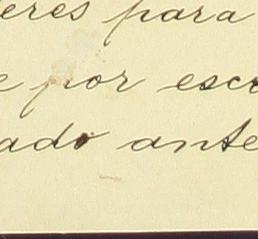 eres para
e por escr
ado ante